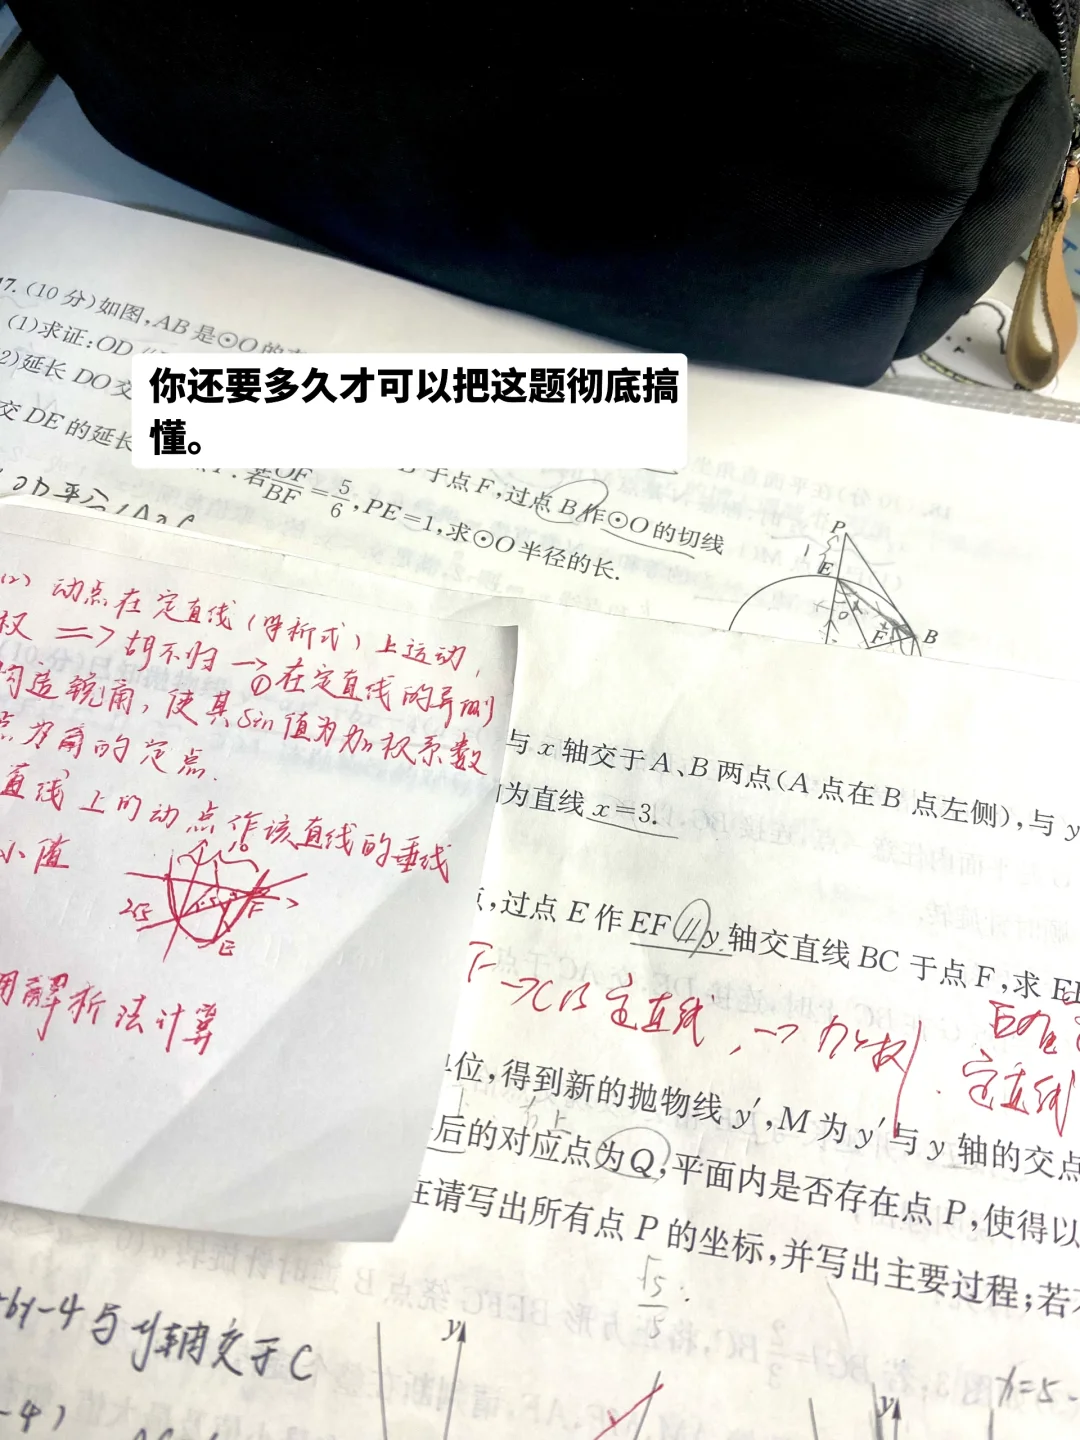 17.(10分)如图,AB是⊙O的
(1)求证:OD
你还要多久才可以把这题彻底搞
懂。
2)延长DO交
于点F,过点B作⊙O的切线
交DE的延长
若OF/BF=5/6,PE=1,求⊙O半径的长.
P
1
E
F
B
(2)动点在定直线(解析式)上运动,
权 => 胡不归→①在定直线的异侧
构造锐角,使其sin值为加权系数
点为角的定点.
直线上的动点作该直线的垂线
小值
F
E
用解析法计算
与x轴交于A、B两点(A点在B点左侧),与y
为直线x=3.
,过点E作EF∥y轴交直线BC于点F,求E
F→CB定直线,→加权
定直线
位,得到新的抛物线y′,M为y′与y轴的交点
右上
后的对应点为Q,平面内是否存在点P,使得以
在请写出所有点P的坐标,并写出主要过程;若
√5/5
-4与y轴交于C
y
y
x=5-
-4)